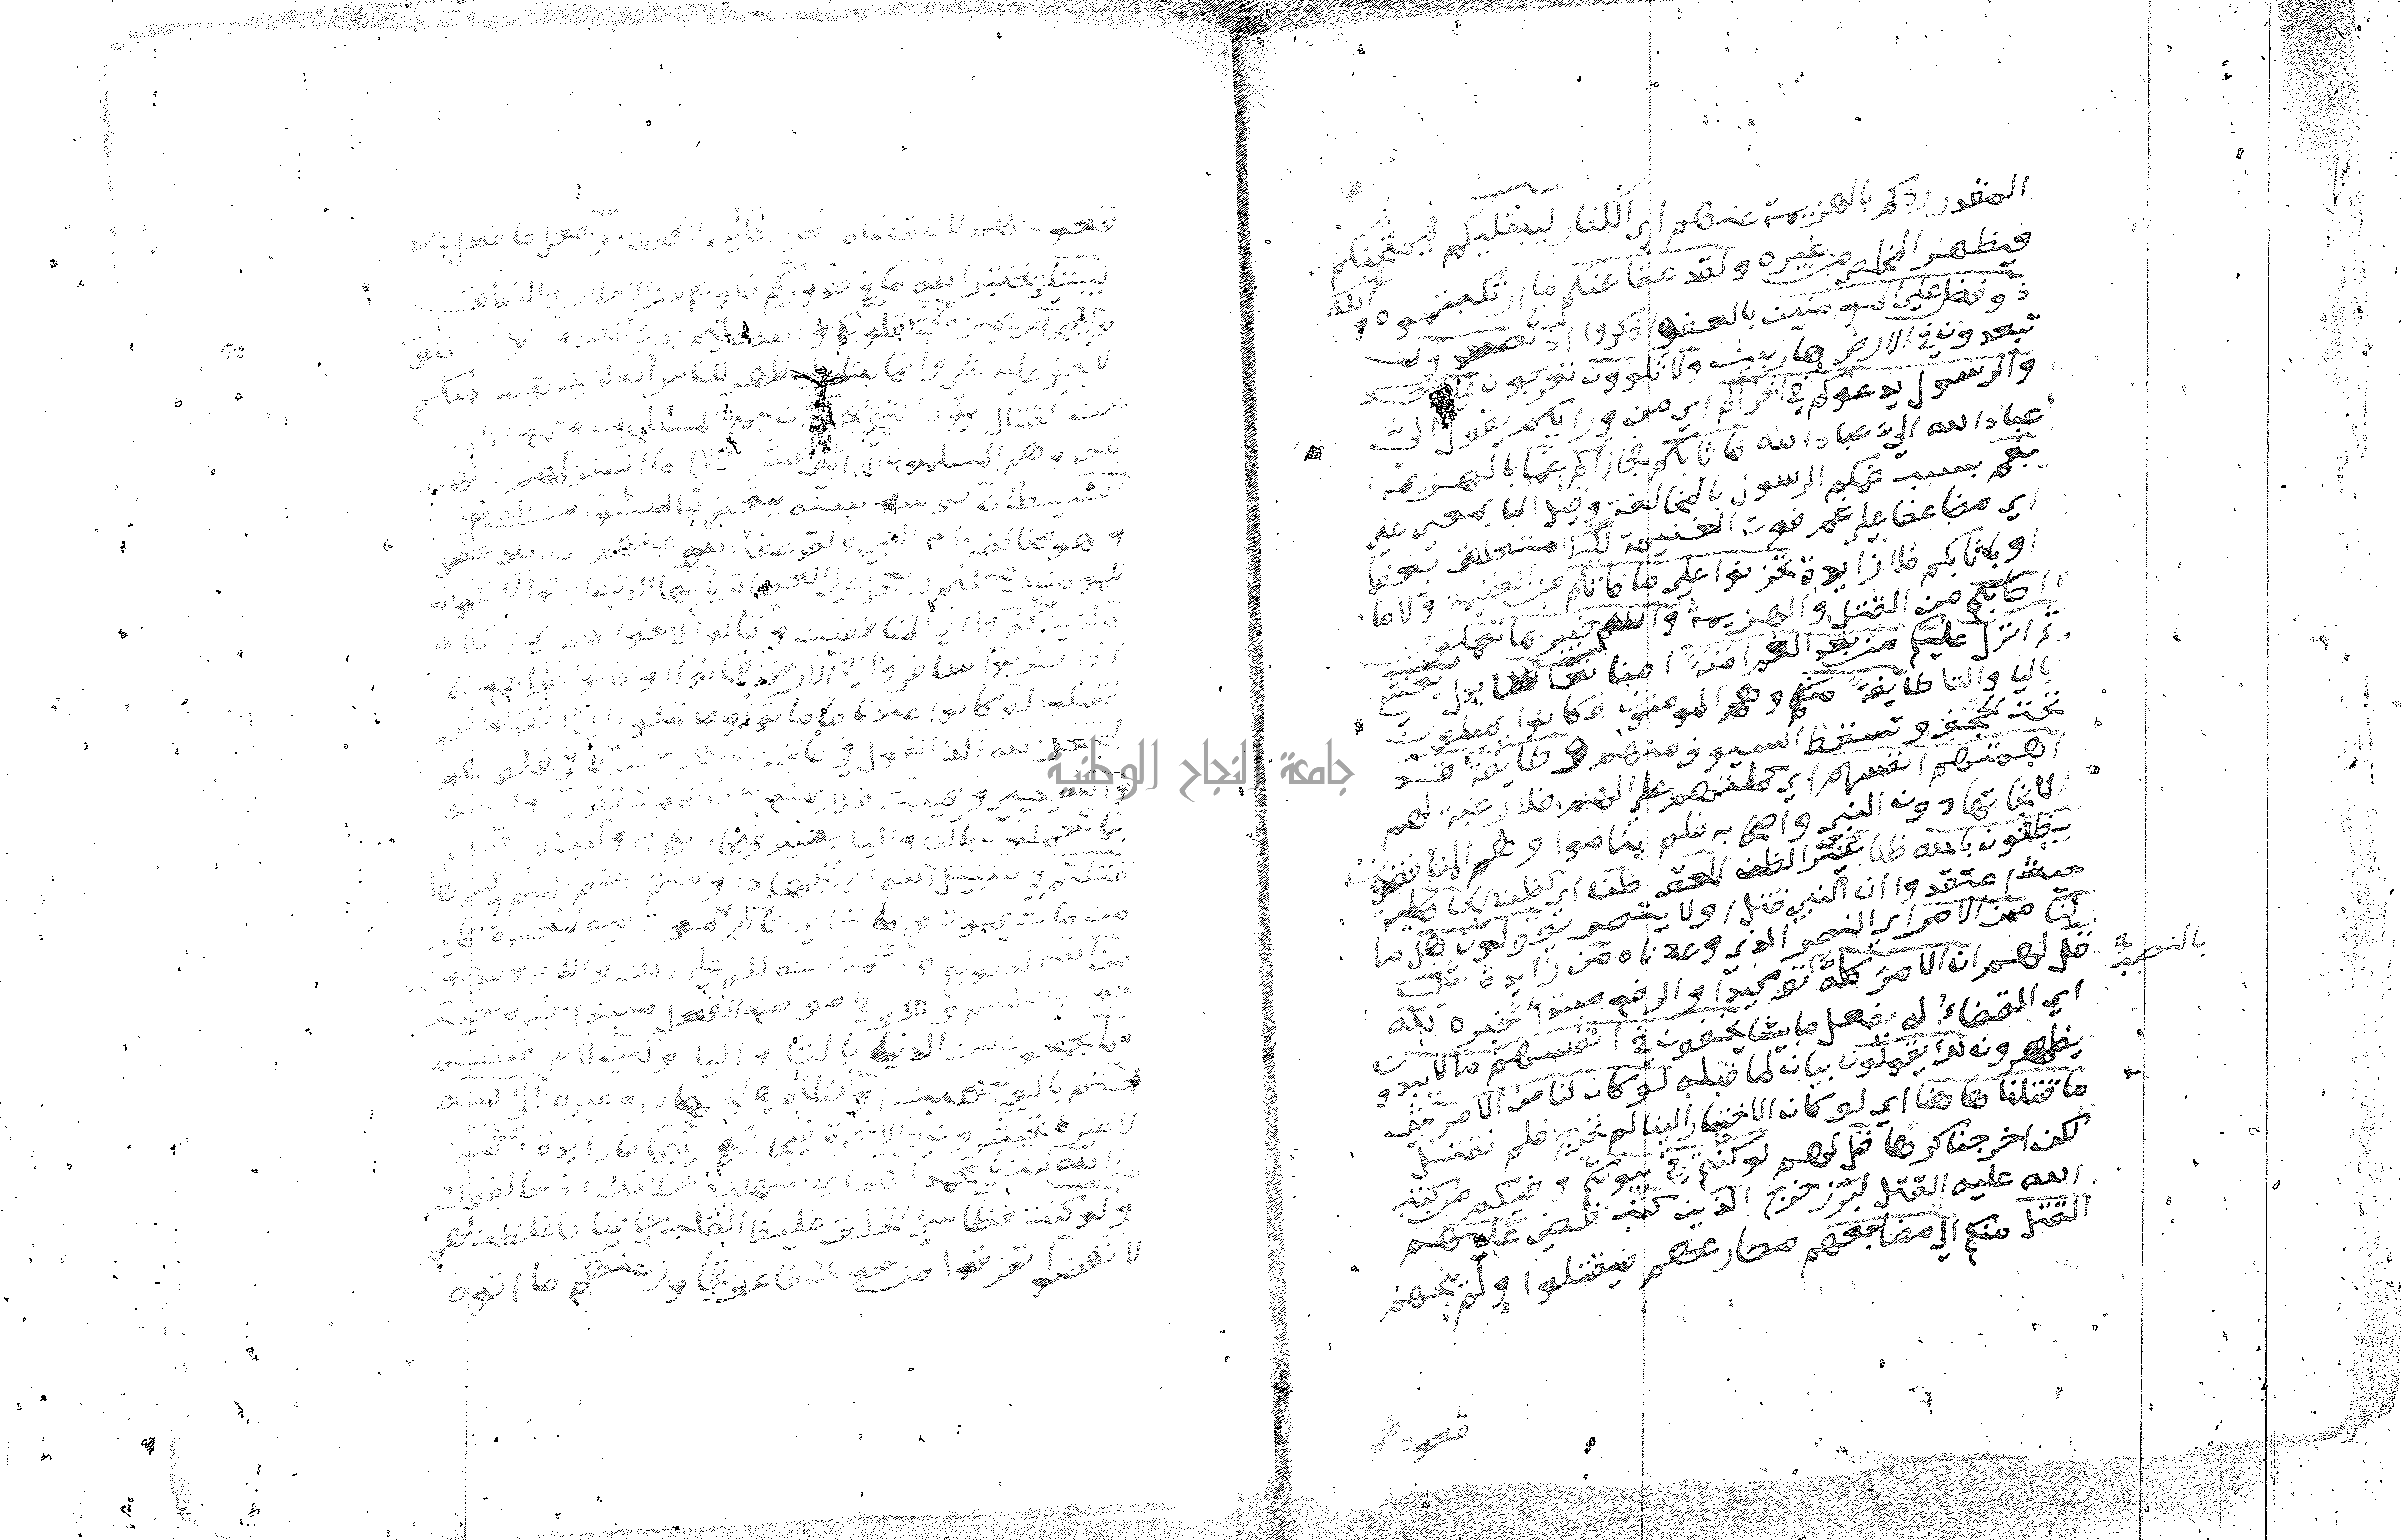 المقدور ردكم بالهزيمة عنهم اي الكفار ليبتليكم ليمتحنكم
فيظهر المخلص من غيره ولقد عفا عنكم ما ارتكبتموه والله
ذو فضل علي المومنين بالعفو اذكروا اذ تصعدون
تبعدون في الارض هاربين ولا تلوون تعرجون علي احد
والرسول يدعوكم في اخراكم اي من ورايكم يقول اليّ
عباد الله اليّ عباد الله فاثابكم فجازاكم غما بالهزيمة
بغم بسبب غمكم الرسول بالمخالفة وقيل البا بمعني علي
اي مضاعفا علي غم فوت الغنيمة لكيلا متعلق بعفا
او باثابكم فلا زايدة تحزنوا علي ما فاتكم من الغنيمة ولا ما
اصابكم من القتل والهزيمة والله خبير بما تعملون
ثم انزل عليكم من بعد الغم امنة امنا نعاسا بدل يغشي
باليا والتا طايفة منكم وهم المومنون فكانوا يميلون
تحت الحجف وتسقط السيوف منهم وطايفة قد
اهمتهم انفسهم اي حملتهم علي الهم فلا رغبة لهم
الا نجاتها دون النبي واصحابه فلم يناموا وهم المنافقون
يظنون بالله ظنا غير الظن الحق ظن اي كظن الجاهلية
حيث اعتقدوا ان النبي قتل او لا ينصر يقولون هل ما
لنا من الامر اي النصر الذي وعدناه من زايدة شي
قل لهم ان الامر كله توكيدا والرفع مبتدا خبره لله
بالنصب
اي القضاء له يفعل ما يشا يخفون في انفسهم ما لا يبدون
يظهرون لك يقولون بيان لما قبله لو كان لنا من الامر شي
ما قتلنا هاهنا اي لو كان الاختيار الينا لم نخرج فلم نقتل
لكن اخرجنا كرها قل لهم لو كنتم في بيوتكم وفيكم من كتب
الله عليه القتل لبرز خرج الذين كتب قضي عليهم
القتل منكم الي مضاجعهم مصارعهم فيقتلوا ولم ينجهم
قعودهم
قعودهم لان قضاه كاين لا محالة وفعل ما فعل باحد
ليبتلي يختبر الله ما في صدوركم قلوبكم من الاخلاص والنفاق
وليمحص يميز ما في قلوبكم والله عليم بذات الصدور
لا يخفي عليه شي وانما يبتلي ليظهر للناس ان الذين تولوا منكم
عن القتال يوم التقي الجمعان جمع المسلمين وجمع
الشيطان بوسوسته ببعض ما كسبوا من الذنوب
وهو مخالفة امر النبي ولقد عفا الله عنهم ان الله غفور
كالذين كفروا اي المنافقين وقالوا لاخوانهم
اذا ضربوا سافروا في الارض فماتوا او كانوا غزا
فقتلوا لو كانوا عندنا ما ماتوا وما قتلوا
ليجعل الله ذلك القول في
والله يحيي ويميت فلا يمنع عن الموت قعود
بما تعملون بالتا واليا بصير فيجازيكم به ولئن لام قسم
قتلتم في سبيل الله اي الجهاد او متم بضم الميم وكسرها
من مات يموت
من الله لذنوبكم ورحمة منه لكم علي ذلك واللام
جواب القسم وهو في موضع الفعل مبتدا خبره خير
مما يجمعون من الدنيا بالتا واليا ولئن لام قسم
متم بالوجهين او قتلتم في الجهاد او غيره لالي الله
لا غيره تحشرون في الاخرة فيجازيكم فبما ما زايدة رحمة
من الله لنت يا محمد لهم اي سهلت اخلاقك اذ خالفوك
ولو كنت فظا سيئ الخلق غليظ القلب جافيا فاغلظت لهم
لانفضوا تفرقوا من حولك فاعف تجاوز عنهم ما اتوه
جامعة النجاح الوطنية